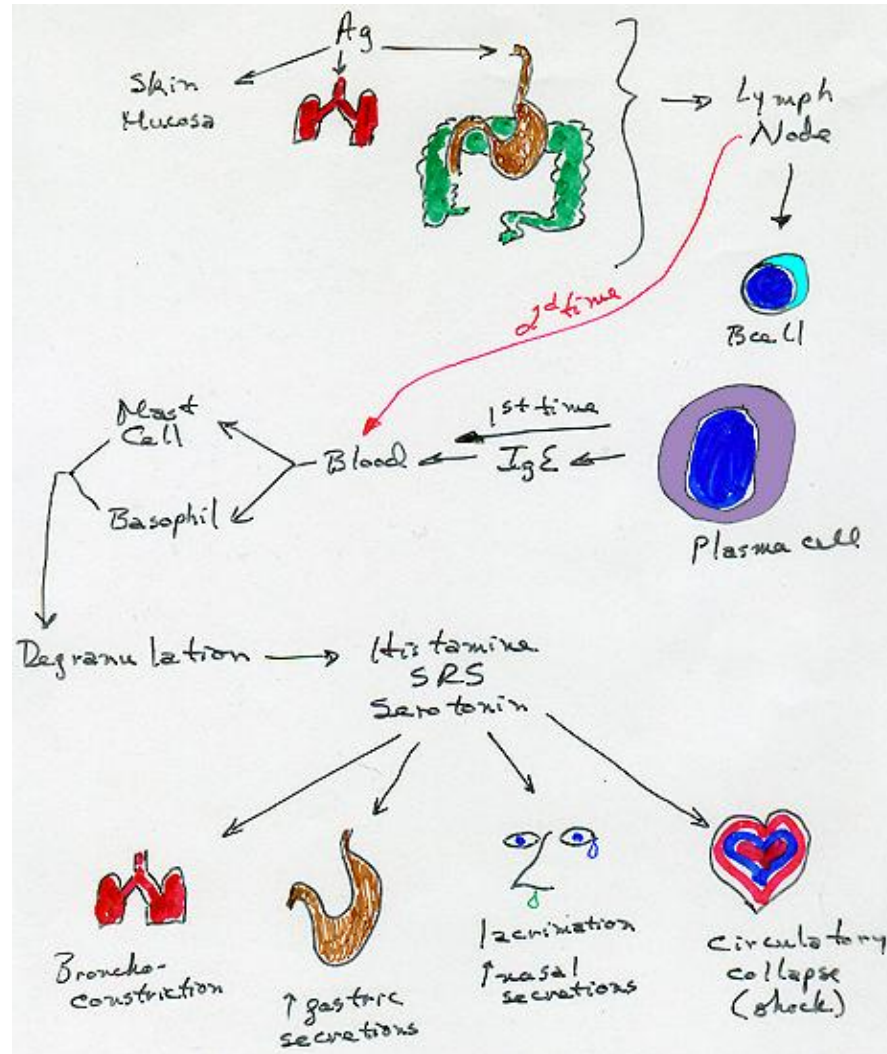 Ag
Skin
Mucosa
Lymph
Node
2d time
B cell
1st time
IgE
Blood
Mast
Cell
Basophil
Plasma cell
Degranulation
Histamine
SRS
Serotonin
Broncho-
constriction
↑ gastric
secretions
lacrimation
↑ nasal
secretions
circulatory
collapse
(shock)